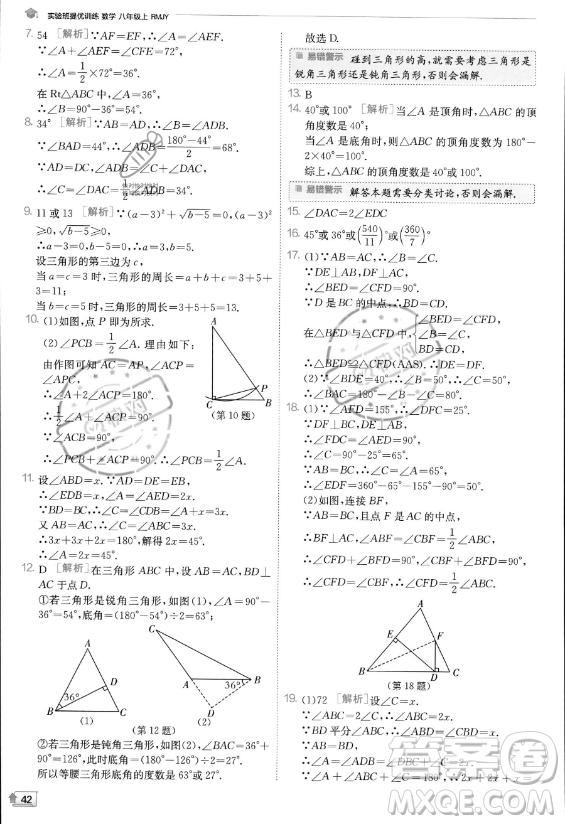 实验班提优训练 数学 八年级上 RMJY
7. 54 [解析] ∵AF=EF,∴∠A=
∴∠A=1/2×72°=36°.
在Rt△ABC中,∠A=36°,
∴∠B=90°-36°=54°.
8. 34° [解析] ∵AB=AD,∴∠B=∠ADB.
∵∠BAD=44°,∴∠ADB=(180°-44°)/2=68°.
∵AD=DC,∠ADB=∠C+∠DAC,
∴∠C=∠DAC=1/2∠ADB=34°.
9. 11或13 [解析] ∵(a-3)²+√(b-5)=0,(a-3)²
≥0,√(b-5)≥0,
∴a-3=0,b-5=0,∴a=3,b=5.
设三角形的第三边为c,
当a=c=3时,三角形的周长=a+b+c=3+5+
3=11;
当b=c=5时,三角形的周长=3+5+5=13.
10. (1)如图,点P即为所求.
(2)∠PCB=1/2∠A.理由如下:
由作图可知∠PCA=
∠APC.
∵∠A+2∠ACP=180°,
∴1/2∠A+∠ACP=90°.
∵∠ACB=90°,
∴∠PCB+∠ACP=90°.∴∠PCB=1/2∠A.
A
C
B
P
(第10题)
11. 设∠ABD=x.∵AD=DE=EB,
∴∠DEB=∠ABD=x,∠A=∠AED=2x.
∵BD=BC,
∴∠C=∠BDC=∠CDB=∠A+x=3x.
又AB=AC,∴∠ABC=∠C=3x.
∴3x+3x+2x=180°,解得x=22.5°.
∴∠A=2x=22.5°×2=45°.
12. D [解析]在三角形ABC中,设AB=AC,BD⊥
AC于点D.
①若三角形是锐角三角形,如图(1),∠A=90°-
36°=54°,底角=(180°-54°)÷2=63°;
A
D
36°
B
C
(1)
C
A
B
D
36°
(2)
(第12题)
②若三角形是钝角三角形,如图(2),∠BAC=
36°+90°=126°,底角=(180°-126°)÷2=27°.
所以等腰三角形底角的度数是63°或27°.
42
故选D.
易错警示 碰到三角形的高,就需要考虑三角形是
锐角三角形还是钝角三角形,否则会漏解.
13. B
14. 40°或100° [解析]当∠A是顶角时,∠A的顶
角度数是40°;
当∠A是底角时,∠A的顶角度数是180°-
2×40°=100°.
综上,∠A的顶角度数是40°或100°.
易错警示 解答本题需要分类讨论,否则会漏解.
15. ∠DAC=2∠EDC
16. 45°或36°或(540/11)°或(360/7)°
17. (1)∵AB=AC,∴∠B=∠C.
∵∠BED=∠CFD=90°,
∴∠BED=∠CFD=90°.
∵D是BC的中点,∴BD=CD.
在△BED与△CFD中,
∠BED=∠CFD,
∠B=∠C,
BD=CD,
∴△BED≌△CFD(AAS).∴DE=DF.
(2)∵∠BDE=40°,∴∠B=50°.
∴∠C=50°.∴∠BAC=80°.
18. (1)∵∠AFD=155°,∴∠DFC=25°.
∵DF⊥BC,DE⊥AB,
∴∠FDC=∠AED=90°.
∴∠C=90°-25°=65°.
∵AB=BC,∴∠A=∠C=65°.
∴∠EDF=360°-65°-155°-90°=50°.
(2)如图,连接BF,
∵AB=BC,且点F是AC的中点,
∴BF⊥AC,∠ABF=∠CBF=1/2∠ABC.
∴∠CFD+∠BFD=90°,∠CBF+∠BFD=90°.
∴∠CFD=∠CBF.∴∠CFD=1/2∠ABC.
A
E
F
B
D
C
(第18题)
19. (1)72 [解析]设∠C=x.
∵∠ABC=2∠C,∴∠ABC=2x.
∵BD平分∠ABC,∴∠ABD=∠CBD=x.
∵AB=BD,∴∠A=∠ADB=∠CBD+∠C=2x.
∵∠A+∠ABC+∠C=180°,∴2x+2x+x=
答案圈
MXQE.COM